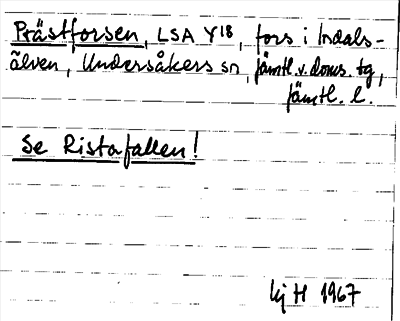 Prästforsen, LSA Y18, fors i Indals-
älven, Undersåkers sn, Jämtl. v. doms. tg,
Jämtl. l.
Se Ristafallen!
kj H 1967